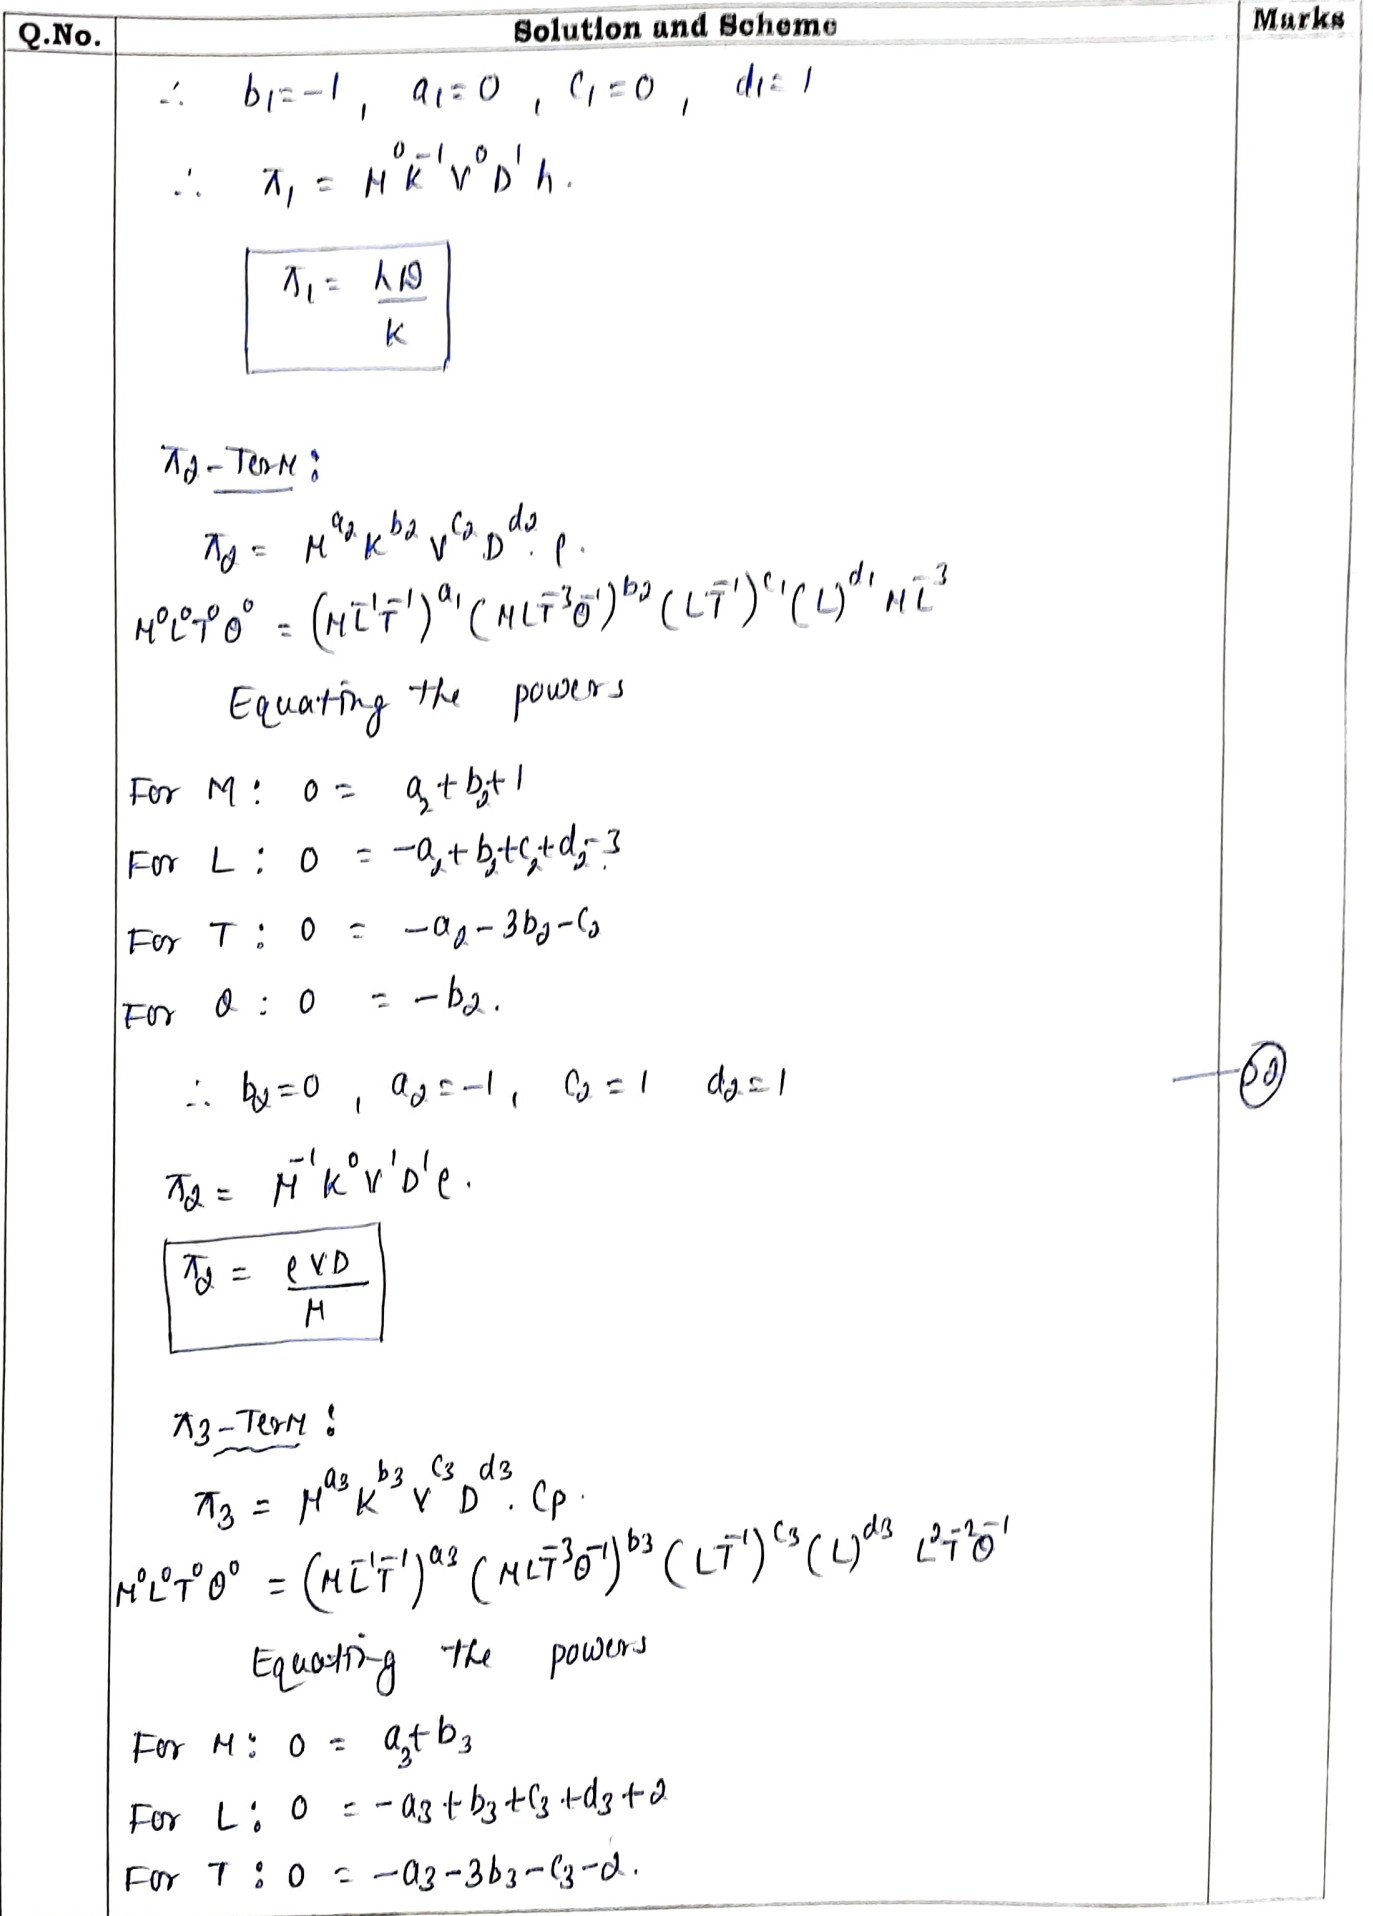 Q.No. Solution and Scheme Marks
∴ b₁=-1, a₁=0, c₁=0, d₁=1
∴ π₁ = μ⁰ K⁻¹ V⁰ D¹ h.
π₁ = hD/K
π₂-Term:
π₂ = μ^a₂ K^b₂ V^c₂ D^d₂ . ρ.
M⁰L⁰T⁰θ⁰ = (ML⁻¹T⁻¹)^a₁ (MLT⁻³θ⁻¹)^b₂ (LT⁻¹)^c₁ (L)^d₁ ML⁻³
Equating the powers
For M: 0 = a₂+b₂+1
For L: 0 = -a₂+b₂+c₂+d₂-3
For T: 0 = -a₂-3b₂-c₂
For θ: 0 = -b₂.
∴ b₂=0, a₂=-1, c₂=1 d₂=1 — 02
π₂ = μ⁻¹ K⁰ V¹ D¹ ρ.
π₂ = ρVD/μ
π₃-Term:
π₃ = μ^a₃ K^b₃ V^c₃ D^d₃ . Cp.
M⁰L⁰T⁰θ⁰ = (ML⁻¹T⁻¹)^a₃ (MLT⁻³θ⁻¹)^b₃ (LT⁻¹)^c₃ (L)^d₃ L²T⁻²θ⁻¹
Equating the powers
For M: 0 = a₃+b₃
For L: 0 = -a₃+b₃+c₃+d₃+2
For T: 0 = -a₃-3b₃-c₃-2.